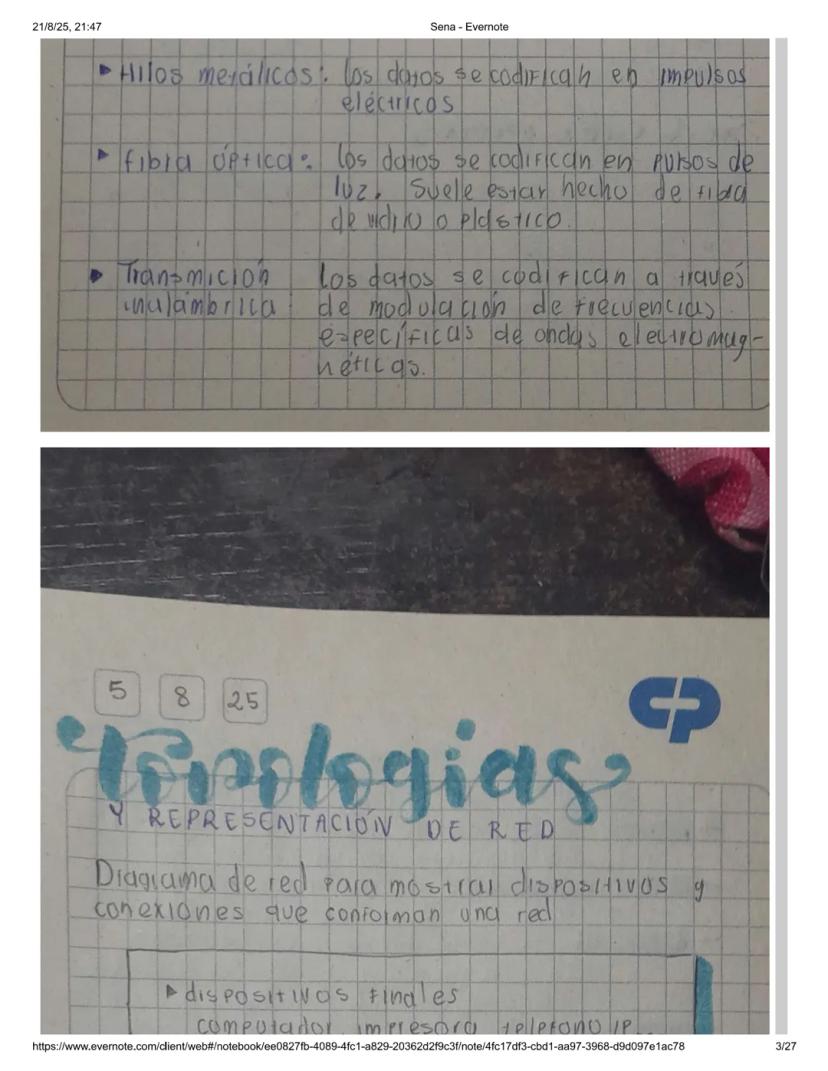 21/8/25, 21:47
Sena - Evernote
Hilos metálicos: los datos se codifican en impulsos
eléctricos
fibra óptica: los datos se codifican en pulsos de
luz. Suele estar hecho de fibra
de vidrio o plástico.
Transmición los datos se codifican a través
inalámbrica: de modulación de frecuencias
específicas de ondas electromag-
néticas.
5 8 25
CP
Topologias
Y REPRESENTACIÓN DE RED
Diagrama de red para mostrar dispositivos y
conexiones que conforman una red
dispositivos finales
computador impresora telefono IP
https://www.evernote.com/client/web#/notebook/ee0827fb-4089-4fc1-a829-20362d2f9c3f/note/4fc17df3-cbd1-aa97-3968-d9d097e1ac78
3/27